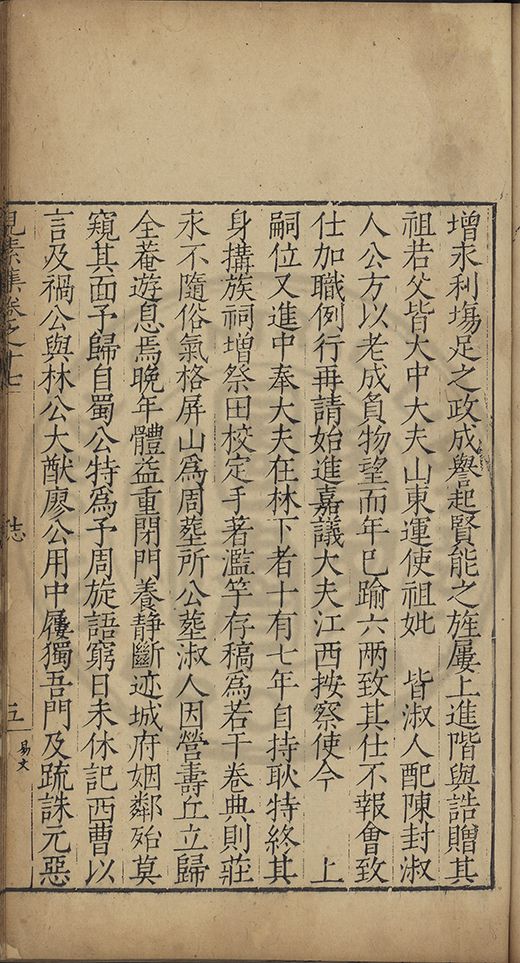 增永利塲足之政成譽起賢能之旌屢上進階與誥贈其
祖若父皆大中大夫山東運使祖妣　皆淑人配陳封淑
人公方以老成負物望而年已踰六兩致其仕不報會致
仕加職例行再請始進嘉議大夫江西按察使今　　上
嗣位又進中奉大夫在林下者十有七年自持耿特終其
身搆族祠增祭田校定手著濫竽存稿為若干卷典則莊
永不隨俗氣格屏山為周塟所公塟淑人因營壽丘立歸
全菴遊息焉晚年體益重閉門養静斷迹城府姻鄰殆莫
窺其面予歸自蜀公特為予周旋語窮日未休記西曹以
言及禍公與林公大猷廖公用中屨獨吾門及疏誅元惡
見素集卷之十七
志
五
易文